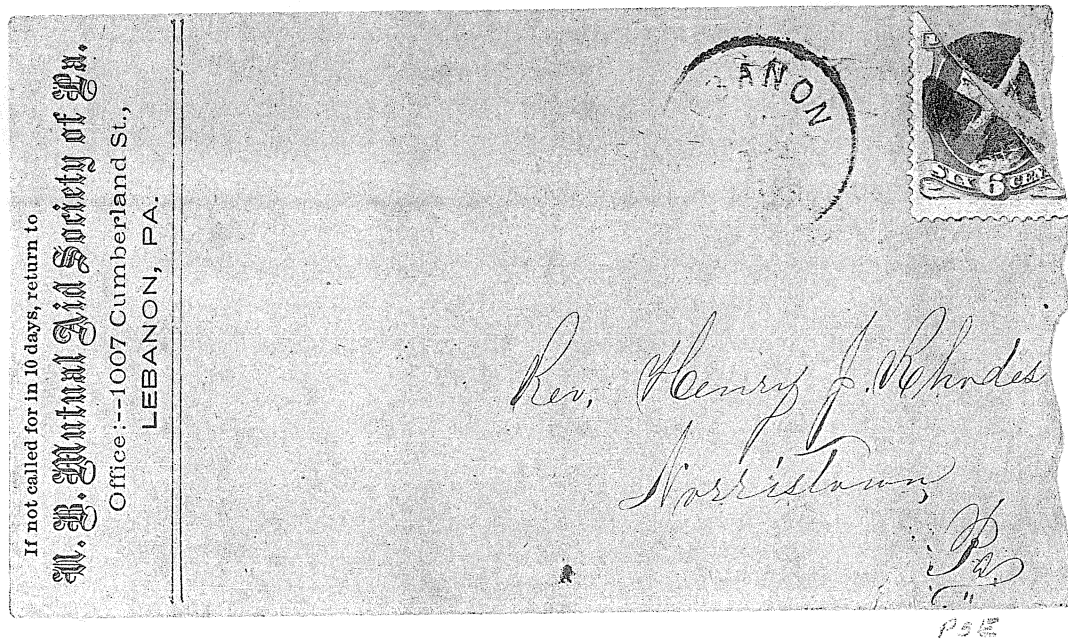 If not called for in 10 days, return to
U. B. Mutual Aid Society of Pa.
Office:--1007 Cumberland St.,
LEBANON, PA.
ANON
SIX 6 CEN
Rev. Henry J. Rhodes
Norristown,
Pa.
PSE